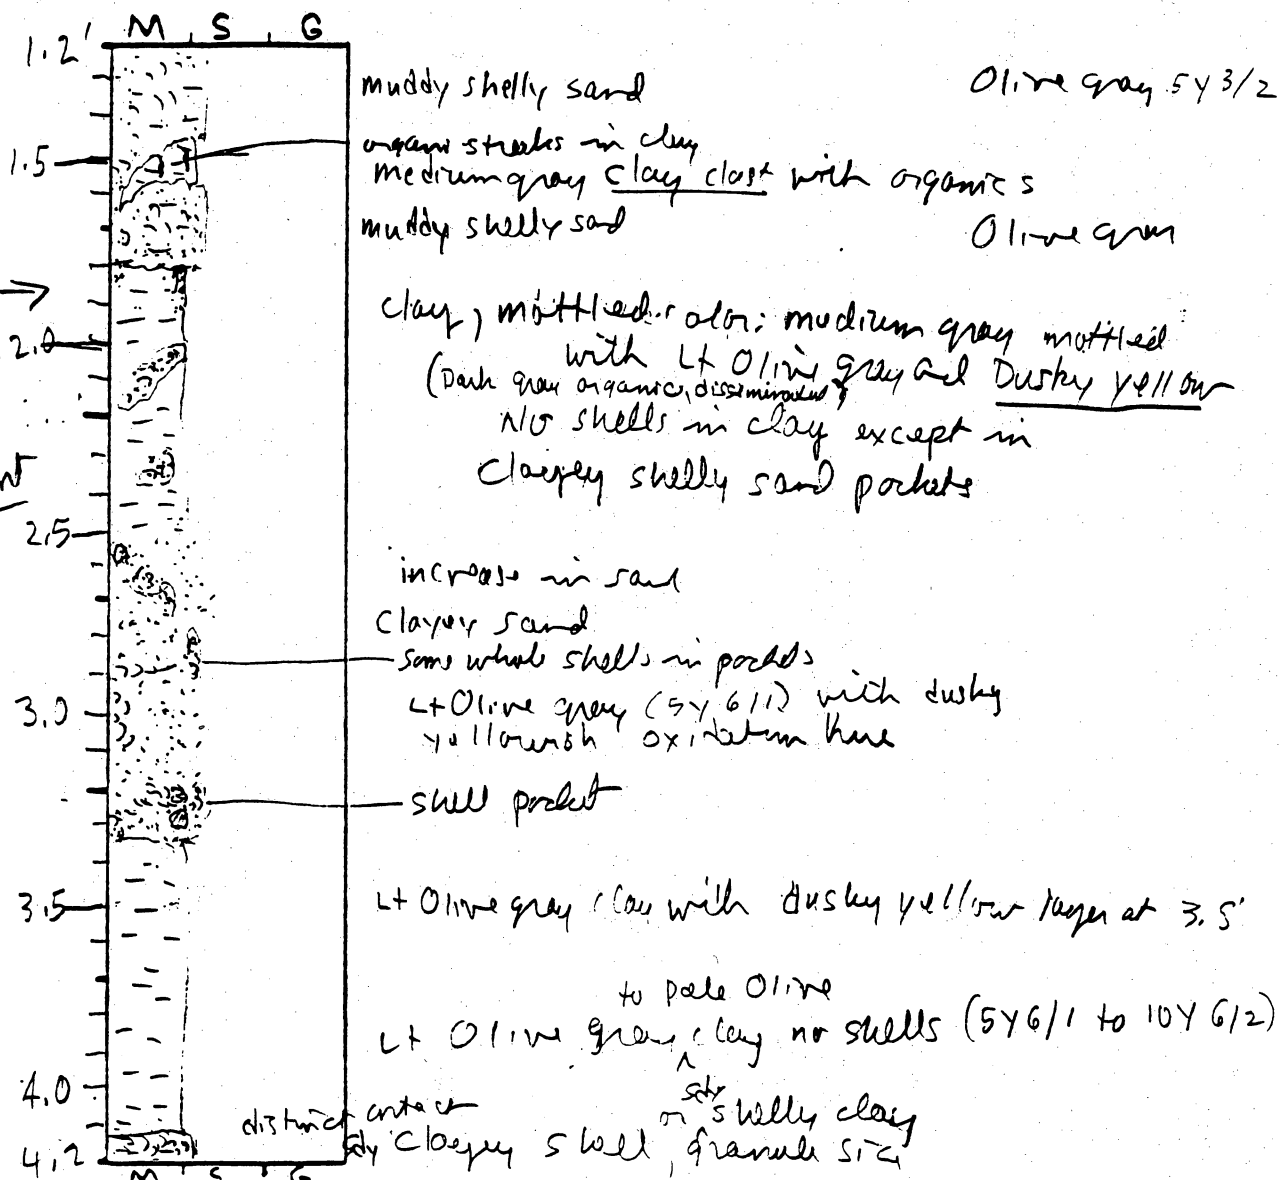 M S G
1.2'
muddy shelly sand
Olive gray 5Y 3/2
organic streaks in clay
1.5
medium gray clay clast with organics
muddy shelly sand
Olive gray
clay, mottled color: medium gray mottled
2.0
with Lt Olive gray and Dusky yellow
(Dark gray organics, disseminated)
No shells in clay except in
clayey shelly sand pockets
2.5
increase in sand
clayey sand
some whole shells in pockets
3.0
Lt Olive gray (5Y 6/1) with dusky
yellowish oxidation here
shell pocket
3.5
Lt Olive gray clay with dusky yellow layer at 3.5'
to pale Olive
Lt Olive gray clay no shells (5Y6/1 to 10Y 6/2)
4.0
distinct contact
or sdy shelly clay
4.2
sdy clayey shell, granule size
M S G